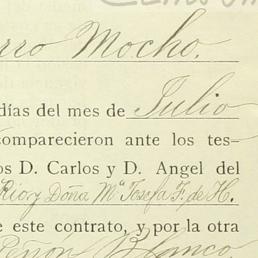 rro Mocho.
días del mes de Julio
comparecieron ante los tes-
os D. Carlos y D. Angel del
Rio y Doña Mª Josefa F. de H.
e este contrato, y por la otra
Peñon Blanco